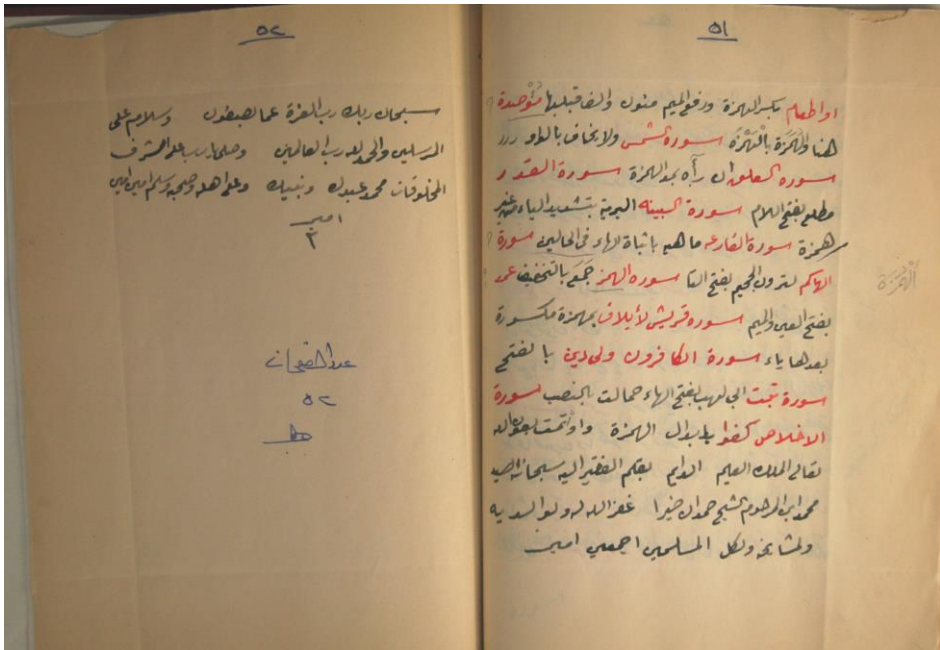 ٥١
او اطعام بكسر الهمزة ورفع الميم منون والف قبلها مُؤْصدة
هنا والهُمَزة بالْهَمْزَة سورة الشمس ولا يخاف بالواو
سورة العلق ان رأه بمد الهمزة سورة القدر
مطلع بفتح اللام سورة البينه البرية بتشديد الياء من غير
همزة سورة القارعه ماهيه باثباة الهاء في الحالين سورة
الهاكم لترون الجحيم بفتح التا سورة الهمز جَمَعَ بالتخفيف عمد
بفتح العين والميم سورة قريش لأيلاف بهمزة مكسورة
بعدها ياء سورة الكافرون ولى دين بالفتح
سورة تبت ابي لهب بفتح الهاء حمالت بالنصب سورة
الاخلاص كفوا بابدال الهمزة واوا تمت بعون الله
تعالى الملك العليم الدايم بقلم الفقير اليه سبحانه
محمد ابن المرحوم الشيخ حمدان خيرا غفر الله له ولوالديه
ولمشايخه ولكل المسلمين اجمعين امين
الْهَمْزَة
٥٢
سبحان ربك رب العزة عما يصفون وسلام على
المرسلين والحمد لله رب العالمين وصلى يارب على اشرف
المخلوقات محمد عبدك ونبيك وعلى اهله وصحبه وسلم امين امين
امين
٣
عدد الصفحات
٥٢